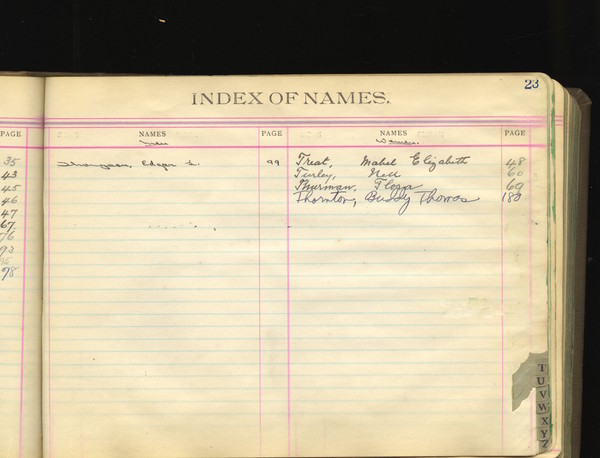 23
INDEX OF NAMES.
PAGE NAMES PAGE NAMES PAGE
Men Women.
35 Edgar L. 99 Treat, Mabel Elizabeth 48
43 Turley, Nell 60
45 Thurman, Flora 69
46 Thornton, Buddy Thomas 180
47
67
76
93
98
T
U
V
W
X
Y
Z